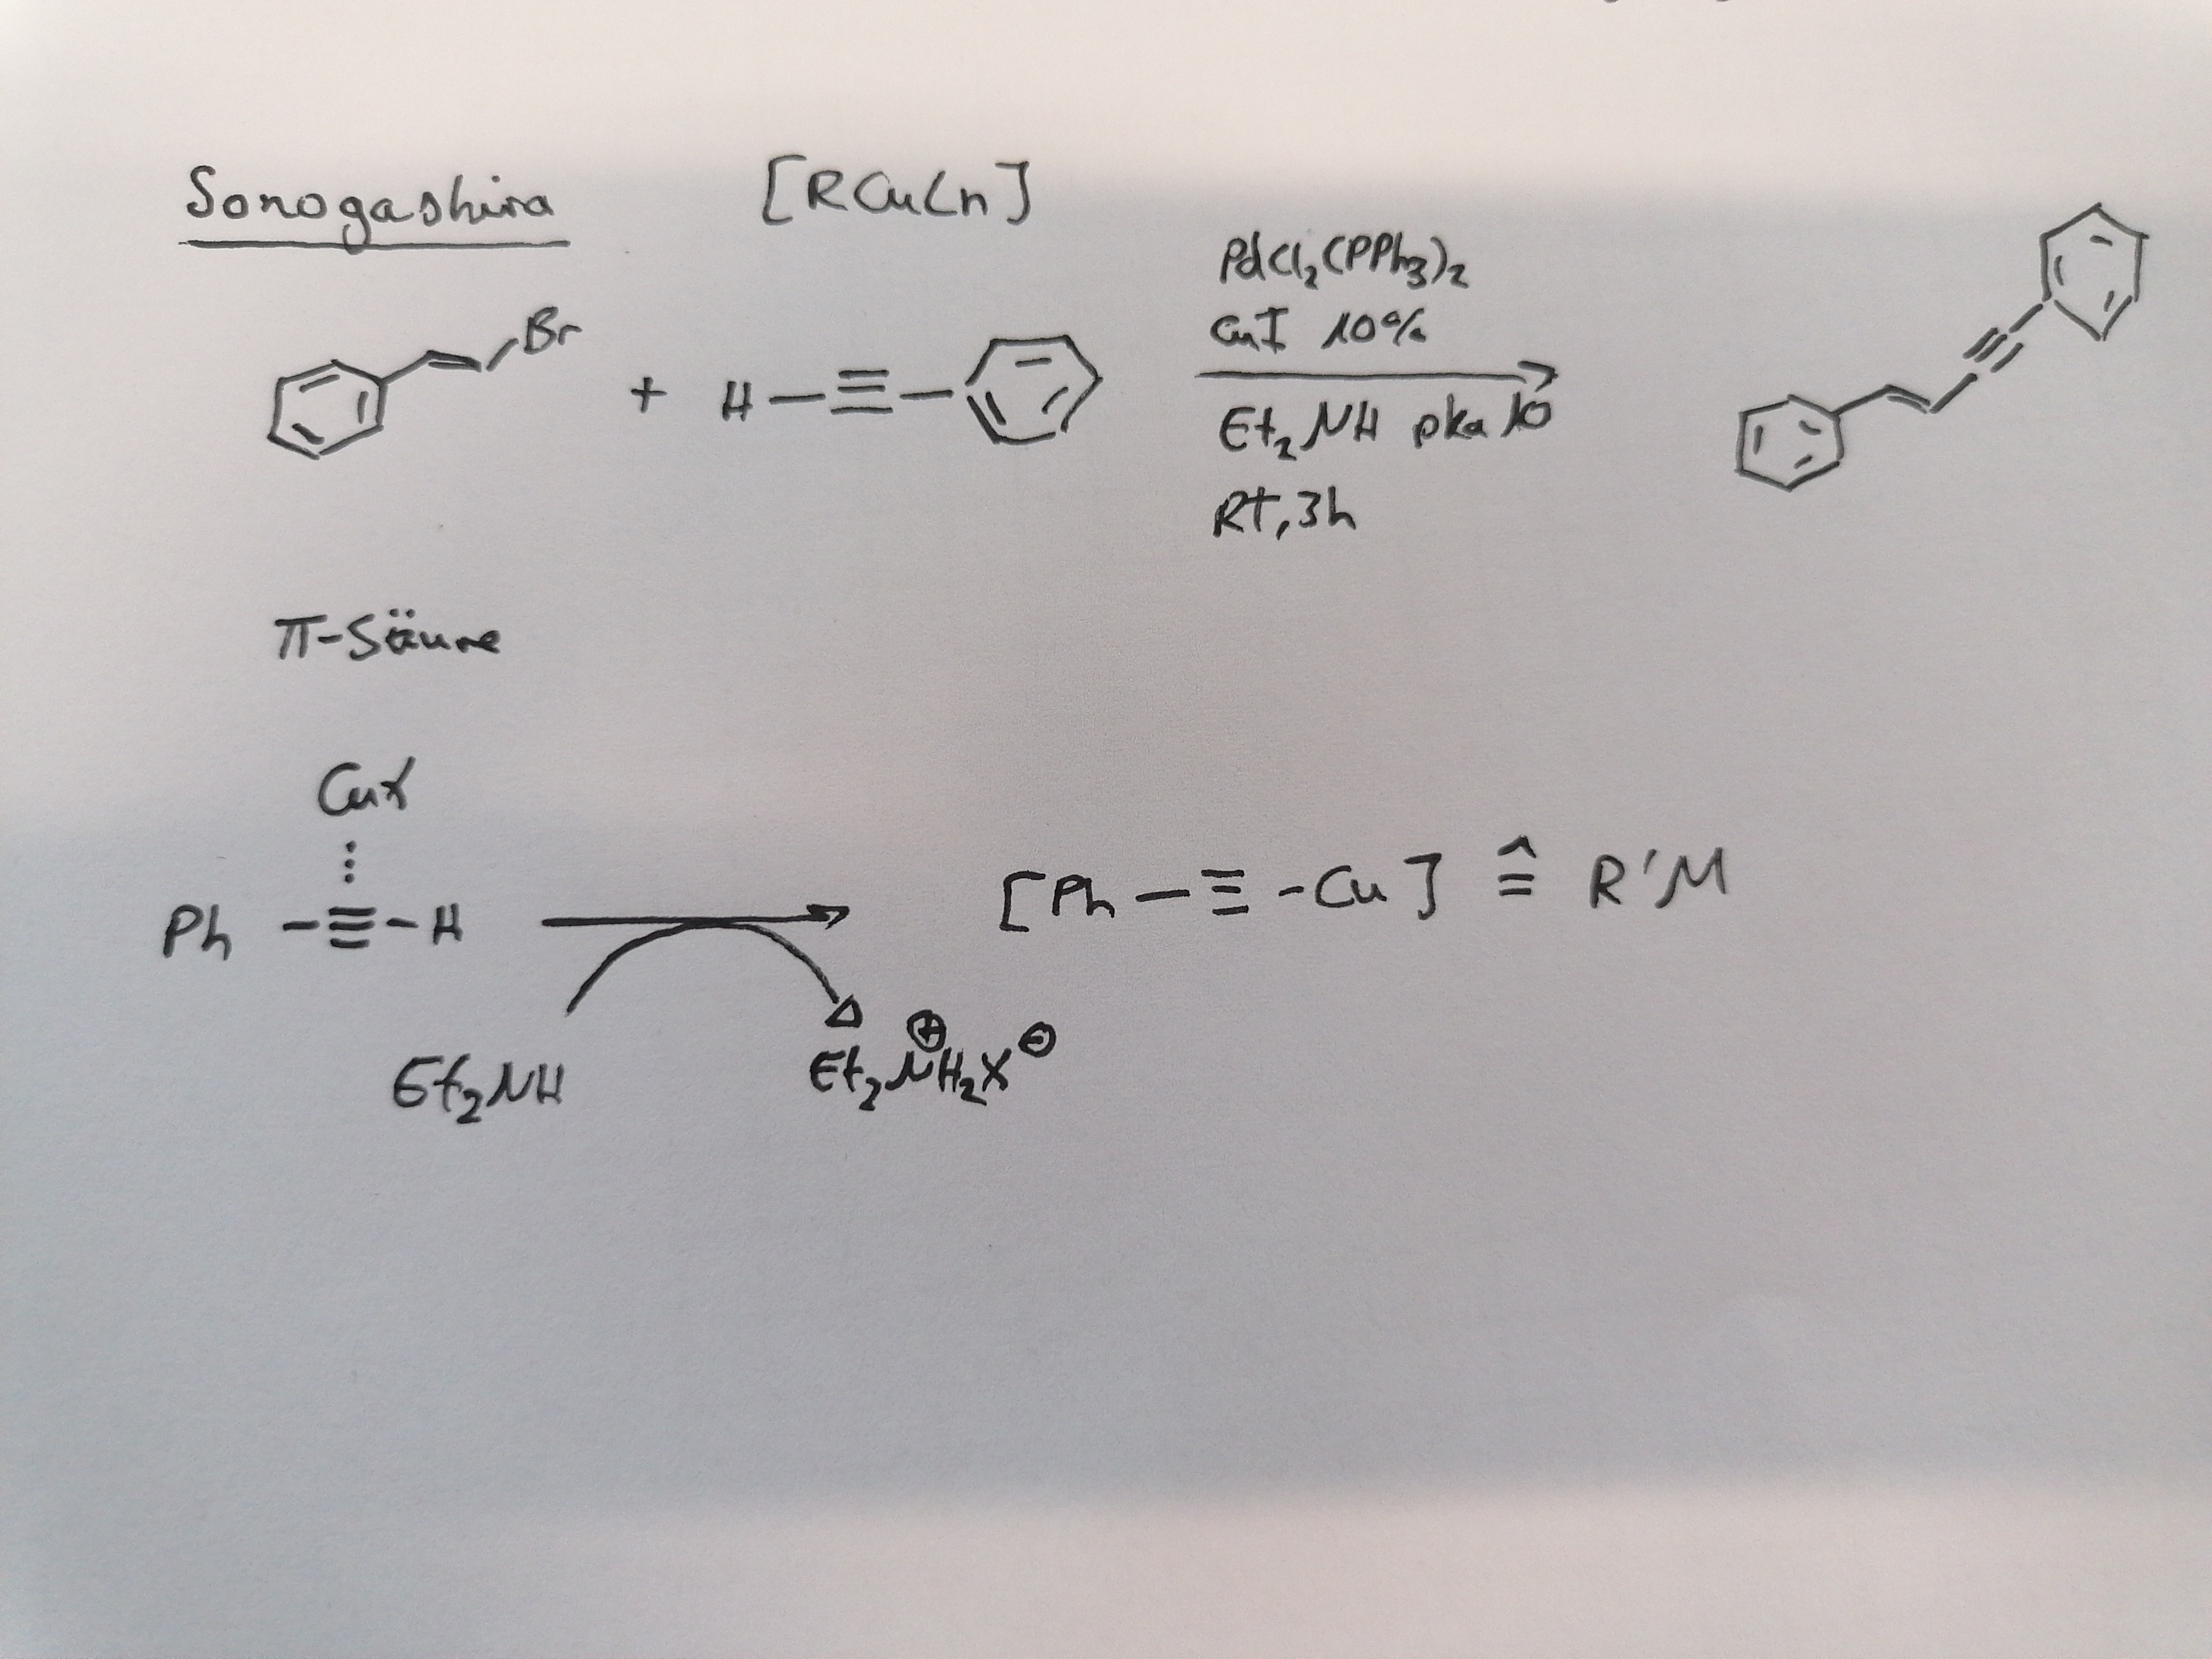 Sonogashira
[RCuLn]
Br
+ H-≡-
PdCl₂(PPh₃)₂
CuI 10%
Et₂NH pka 10
RT, 3h
π-Säure
CuX
Ph -≡-H
Et₂NH
Et₂NH₂X ⊕ ⊖
[Ph-≡-Cu] ≙ R'M